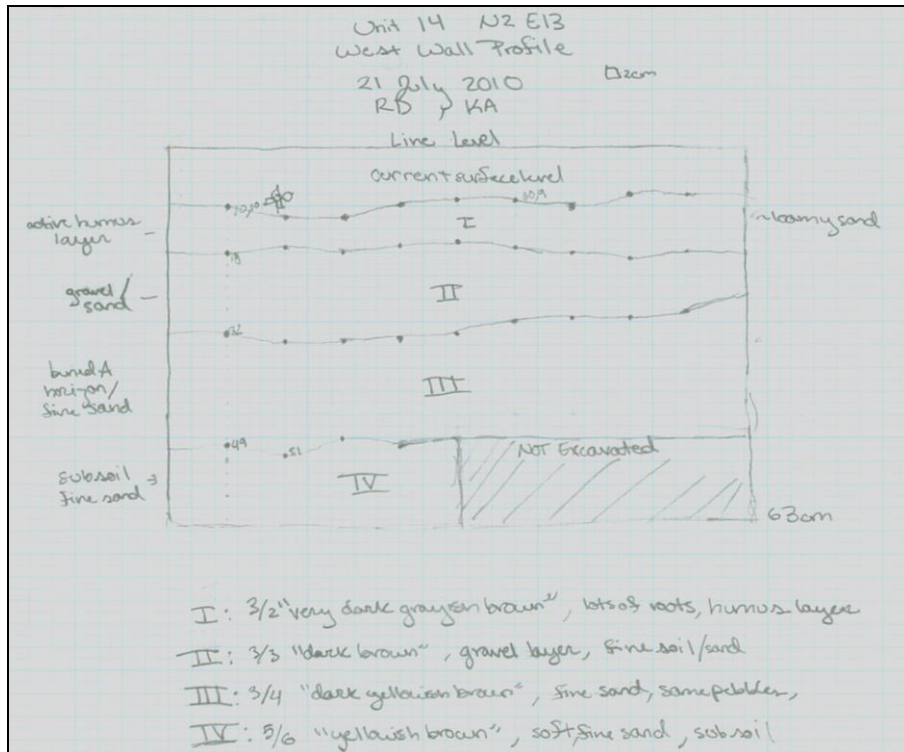 Unit 14 N2 E13
West Wall Profile
2cm
21 July 2010
RB, KA
Line Level
current surface level
I
active humus
layer
loamy sand
18
gravel/
sand
II
32
buried A
horizon/
fine sand
III
49
51
NOT Excavated
subsoil
fine sand
IV
63cm
I: 3/2 "very dark grayish brown", lots of roots, humus layer
II: 3/3 "dark brown", gravel layer, fine soil/sand
III: 3/4 "dark yellowish brown", fine sand, some pebbles,
IV: 5/6 "yellowish brown", soft, fine sand, subsoil